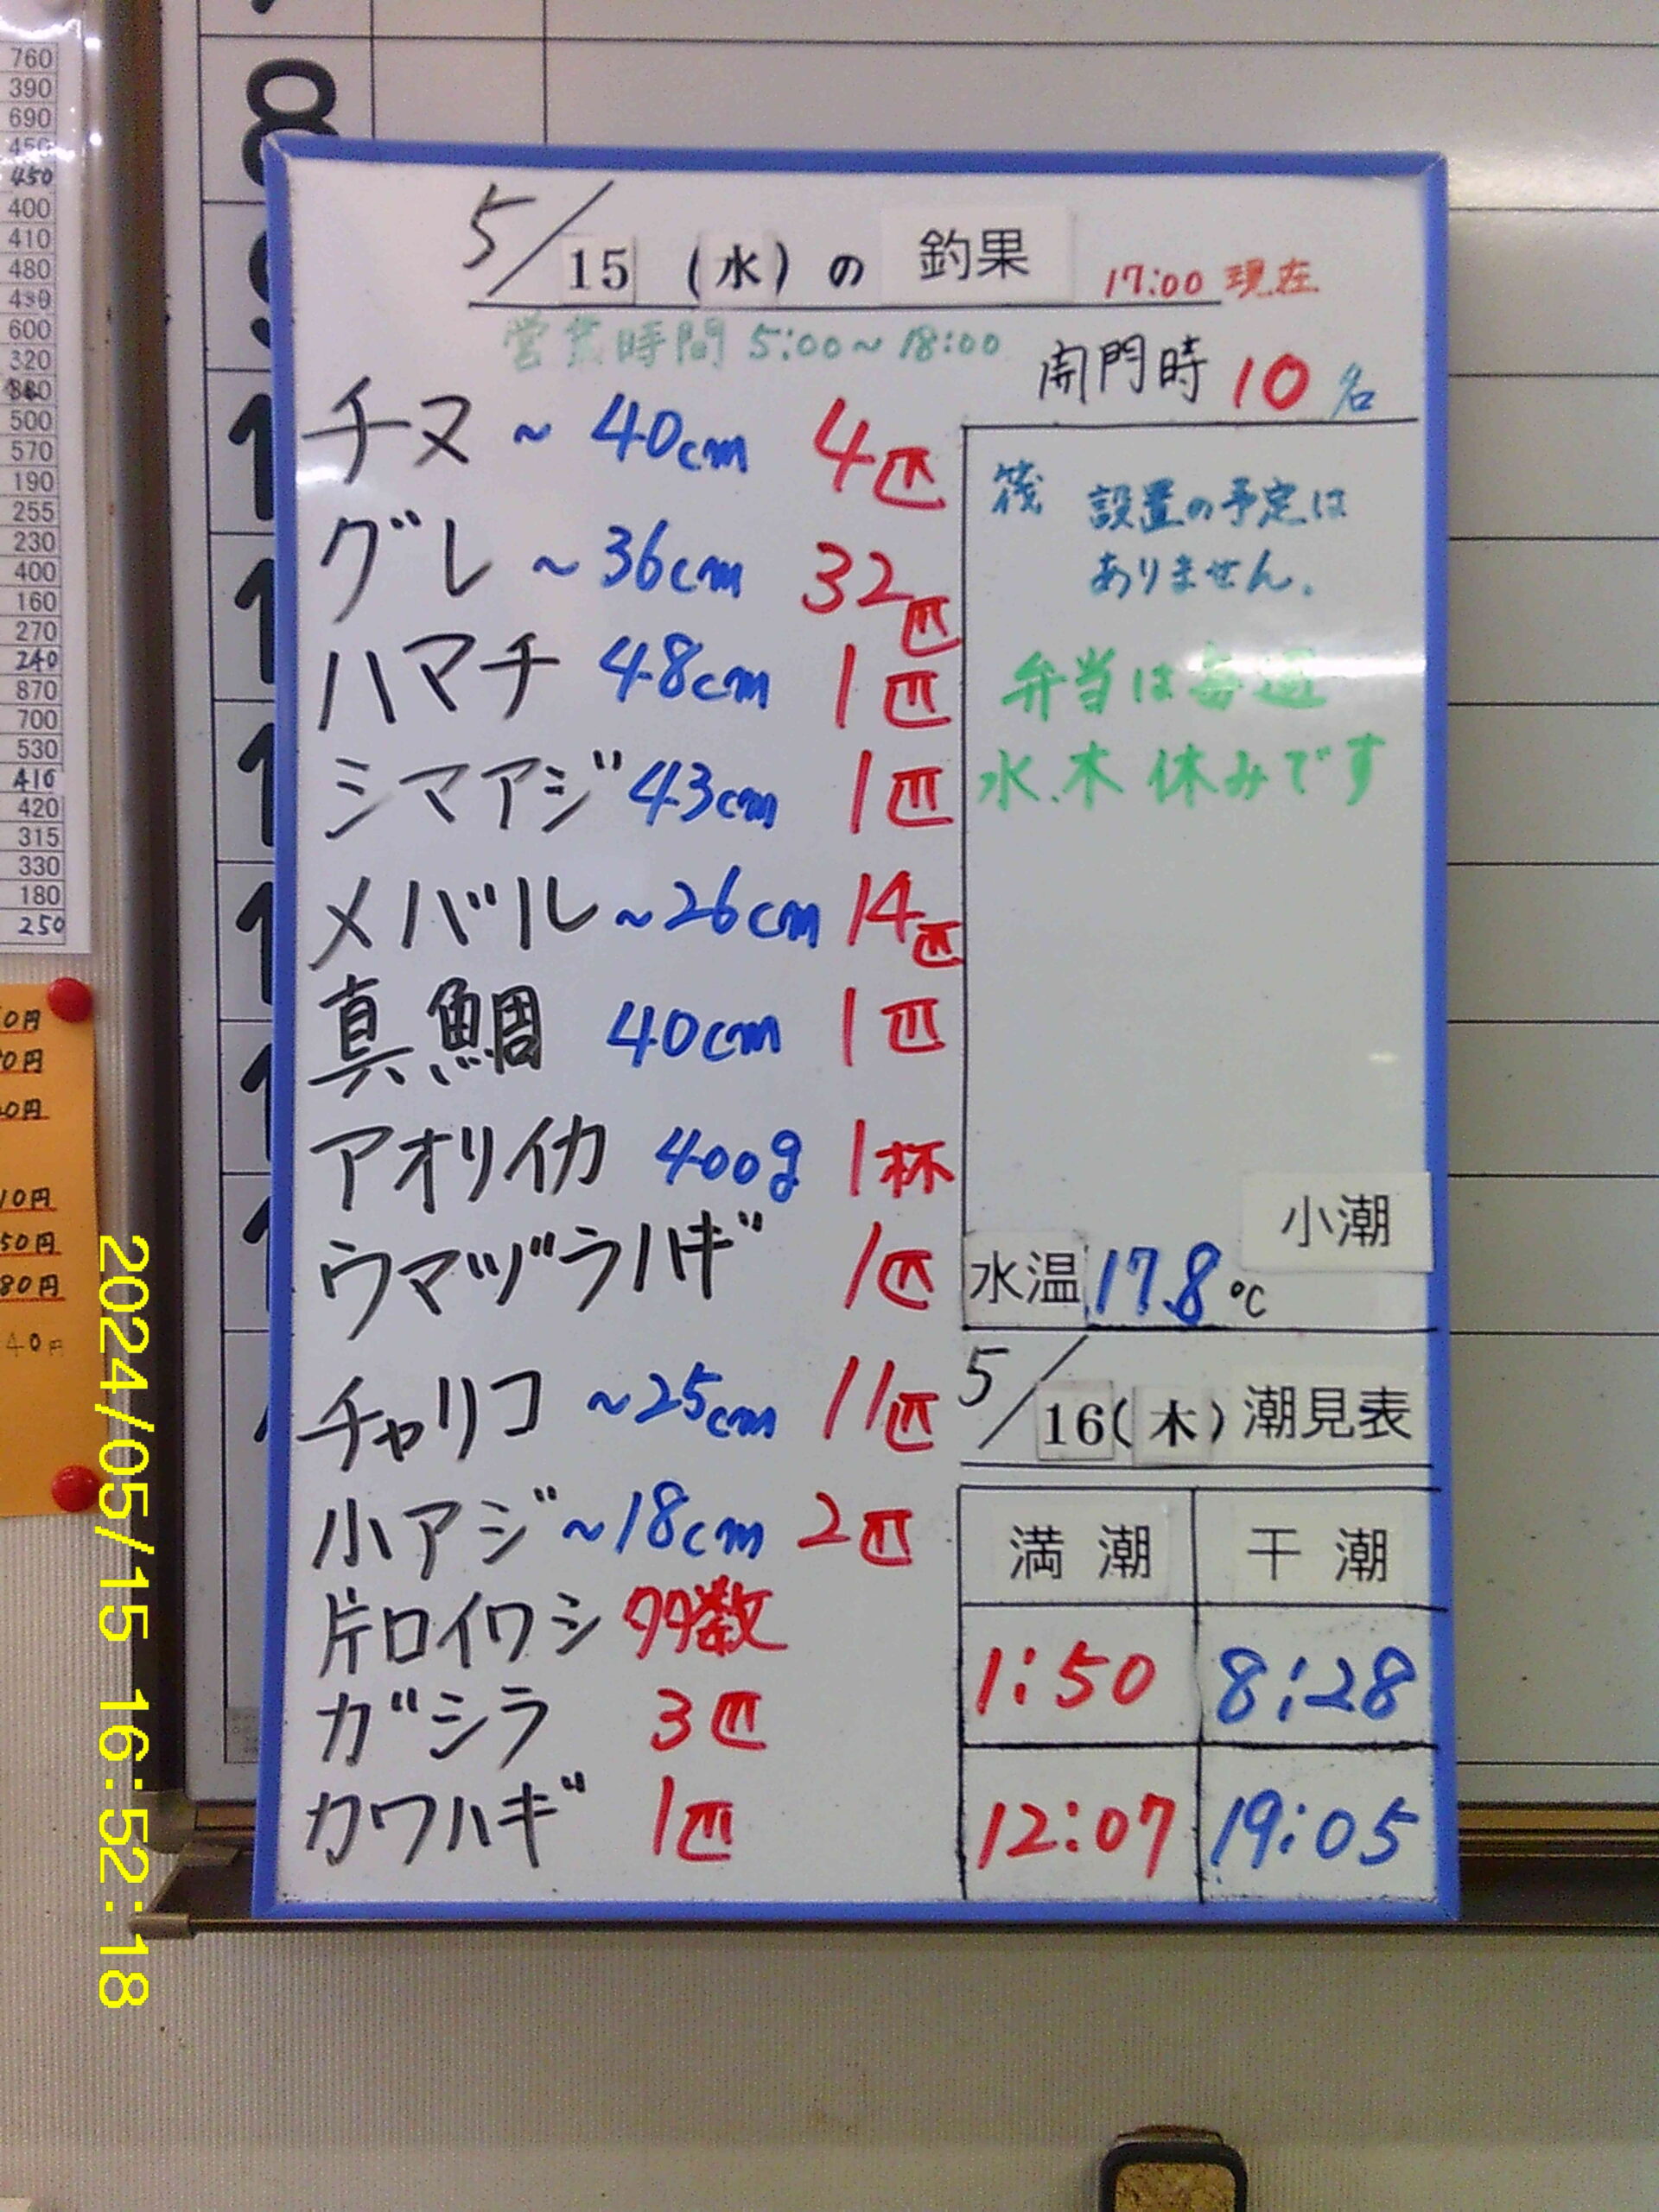 760
390
690
450
450
400
410
480
490
600
320
380
500
570
190
255
230
400
160
270
240
870
700
530
410
420
315
330
180
250
0円
0円
0円
10円
50円
80円
40円
8
5/15 (水) の 釣果 17:00 現在
営業時間 5:00~18:00
開門時 10名
チヌ ~40cm 4匹
グレ ~36cm 32匹
ハマチ 48cm 1匹
シマアジ 43cm 1匹
メバル ~26cm 14匹
真鯛 40cm 1匹
アオリイカ 400g 1杯
ウマヅラハギ 1匹
チャリコ ~25cm 11匹
小アジ ~18cm 2匹
片口イワシ 多数
ガシラ 3匹
カワハギ 1匹
筏 設置の予定は
ありません。
弁当は毎週
水.木 休みです
小潮
水温 17.8℃
5/16(木) 潮見表
満潮 干潮
1:50 8:28
12:07 19:05
2024/05/15 16:52:18